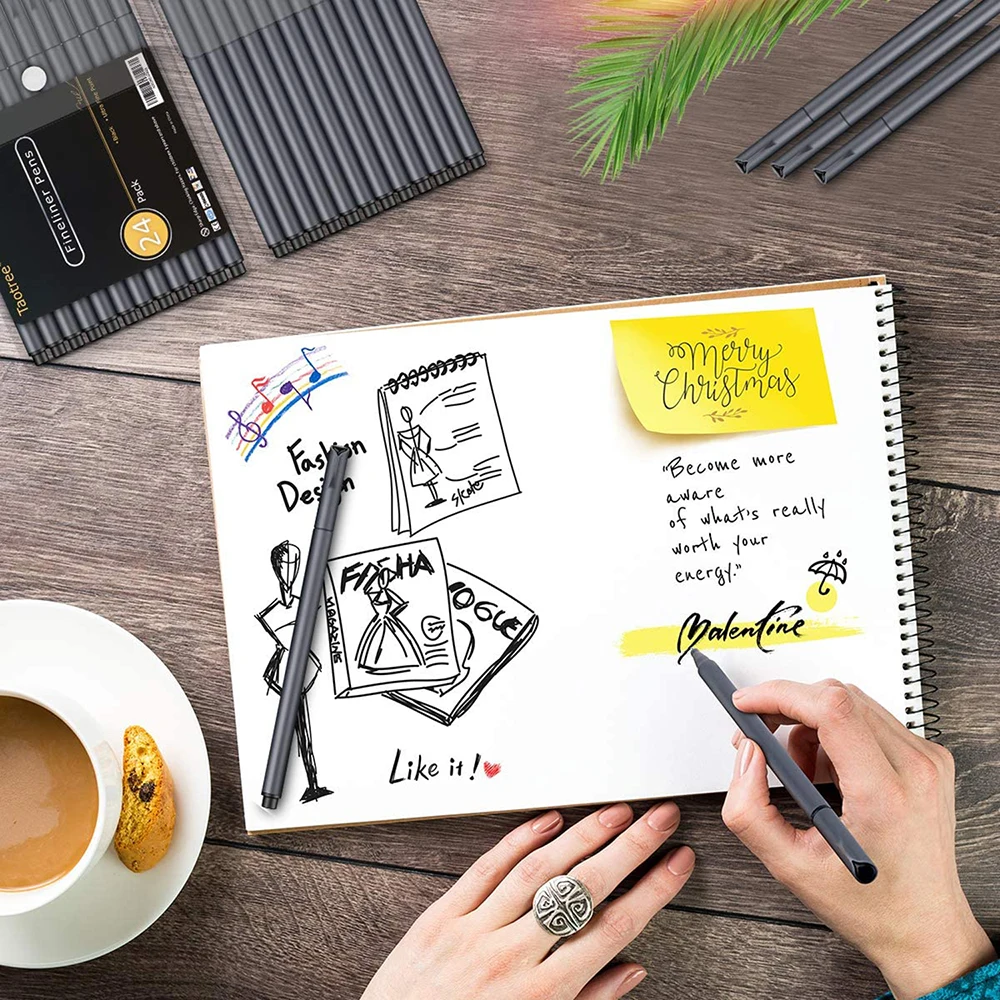 Taotree
Fineliner Pens
24
Pack
• Black • Ultra Fine Point
Merry
Christmas
Fashion
Design
"Become more
aware
of what's really
worth your
energy."
MAGAZINE
Malentine
Like it!